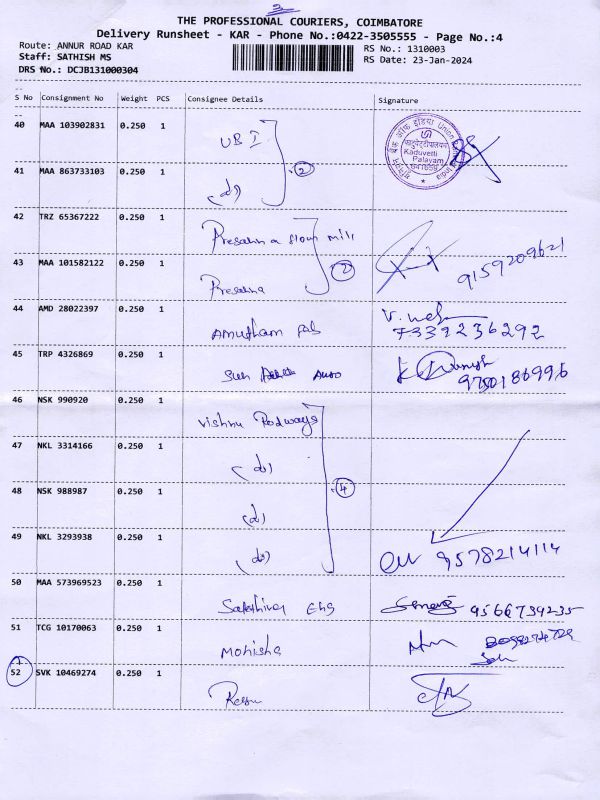 THE PROFESSIONAL COURIERS, COIMBATORE
Delivery Runsheet - KAR - Phone No.:0422-3505555 - Page No.:4
Route: ANNUR ROAD KAR RS No.: 1310003
Staff: SATHISH MS RS Date: 23-Jan-2024
DRS No.: DCJB131000304
S No Consignment No Weight PCS Consignee Details Signature
40 MAA 103902831 0.250 1 UBI
यूनियन बैंक ऑफ इंडिया Union Bank of India
Kaduvetti
Palayam
41 MAA 863733103 0.250 1 (d) 2
42 TRZ 65367222 0.250 1 Presanna flour mill
43 MAA 101582122 0.250 1 Presanna 2 9159209621
44 AMD 28022397 0.250 1 Amutham Fab 7339236292
45 TRP 4326869 0.250 1 Auto 9750186996
46 NSK 990920 0.250 1 Vishnu Rodways
47 NKL 3314166 0.250 1 (d)
48 NSK 988987 0.250 1 (d) 4
49 NKL 3293938 0.250 1 (d) 9578214114
50 MAA 573969523 0.250 1 Sakthivel Eng 9566739235
51 TCG 10170063 0.250 1 Mohisha
52 SVK 10469274 0.250 1